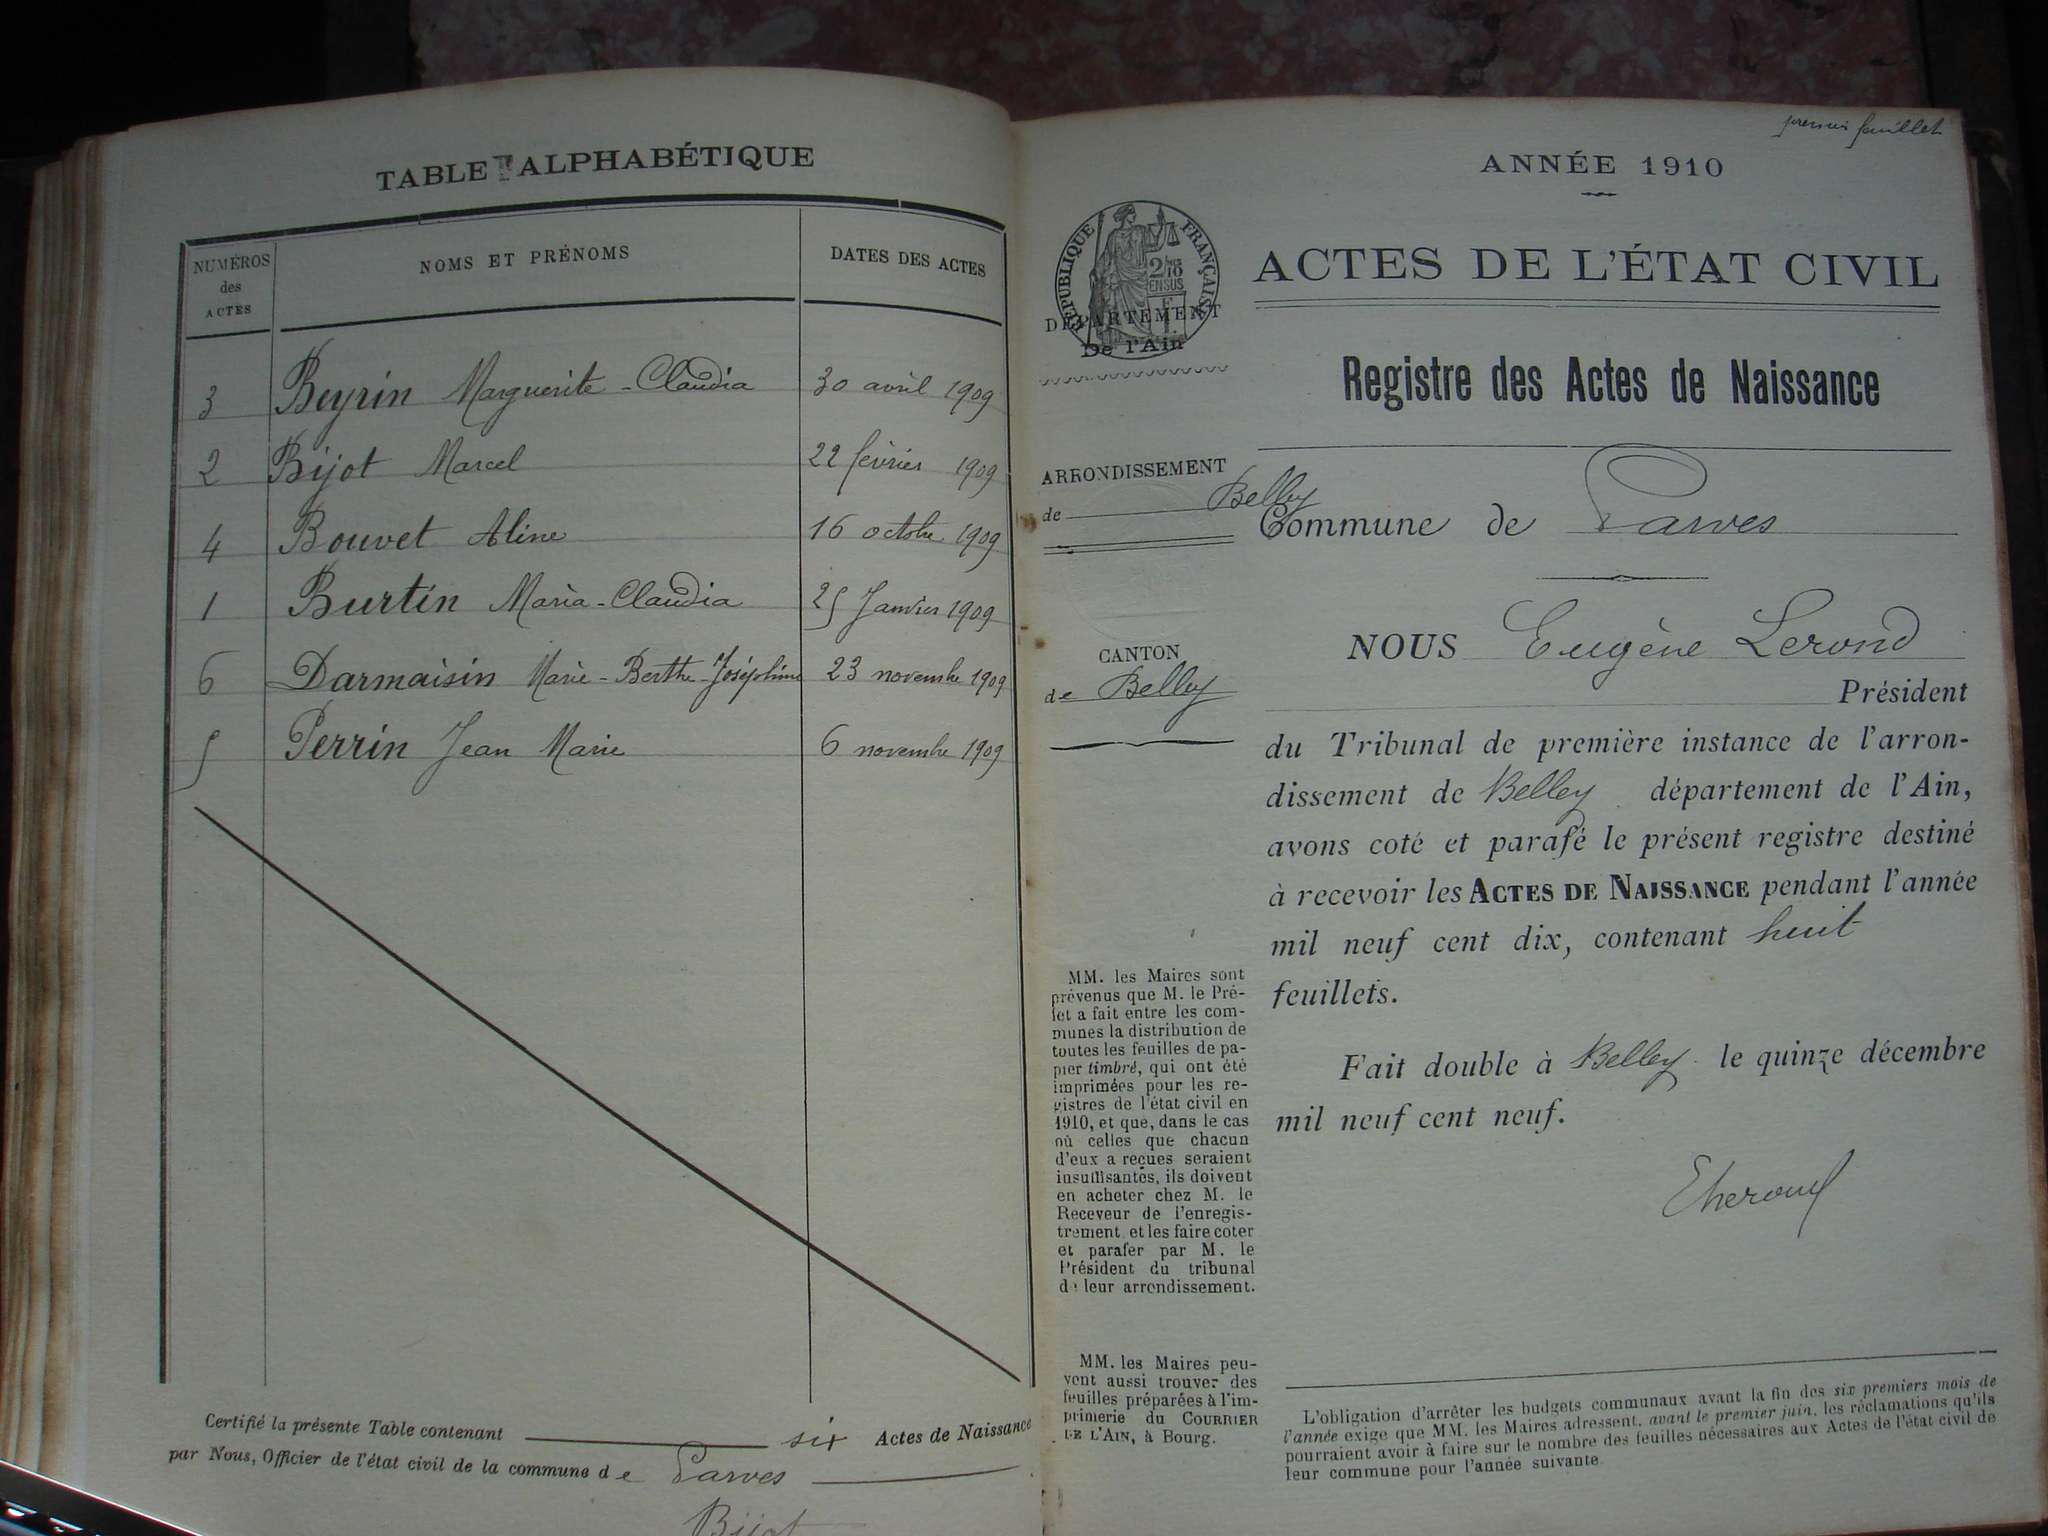 TABLE ALPHABÉTIQUE
NUMÉROS des ACTES NOMS ET PRÉNOMS DATES DES ACTES
3 Beyrin Marguerite-Claudia 30 avril 1909
2 Bijot Marcel 22 février 1909
4 Bouvet Aline 16 octobre 1909
1 Burtin Maria-Claudia 25 Janvier 1909
6 Darmaisin Marie-Berthe-Joséphine 23 novembre 1909
5 Perrin Jean Marie 6 novembre 1909
Certifié la présente Table contenant six Actes de Naissance
par Nous, Officier de l'état civil de la commune de Parves
Bijot
premier feuillet
ANNÉE 1910
RÉPUBLIQUE FRANÇAISE
DÉPARTEMENT
De l'Ain
ACTES DE L'ÉTAT CIVIL
Registre des Actes de Naissance
ARRONDISSEMENT
de Belley
Commune de Parves
CANTON
de Belley
NOUS Eugène Lerond
Président
du Tribunal de première instance de l'arron-
dissement de Belley département de l'Ain,
avons coté et parafé le présent registre destiné
à recevoir les ACTES DE NAISSANCE pendant l'année
mil neuf cent dix, contenant huit
feuillets.
Fait double à Belley le quinze décembre
mil neuf cent neuf.
MM. les Maires sont
prévenus que M. le Pré-
fet a fait entre les com-
munes la distribution de
toutes les feuilles de pa-
pier timbré, qui ont été
imprimées pour les re-
gistres de l'état civil en
1910, et que, dans le cas
où celles que chacun
d'eux a reçues seraient
insuffisantes, ils doivent
en acheter chez M. le
Receveur de l'enregis-
trement et les faire coter
et parafer par M. le
Président du tribunal
de leur arrondissement.
MM. les Maires peu-
vent aussi trouver des
feuilles préparées à l'im-
primerie du COURRIER
DE L'AIN, à Bourg.
L'obligation d'arrêter les budgets communaux avant la fin des six premiers mois de
l'année exige que MM. les Maires adressent, avant le premier juin, les réclamations qu'ils
pourraient avoir à faire sur le nombre des feuilles nécessaires aux Actes de l'état civil de
leur commune pour l'année suivante.